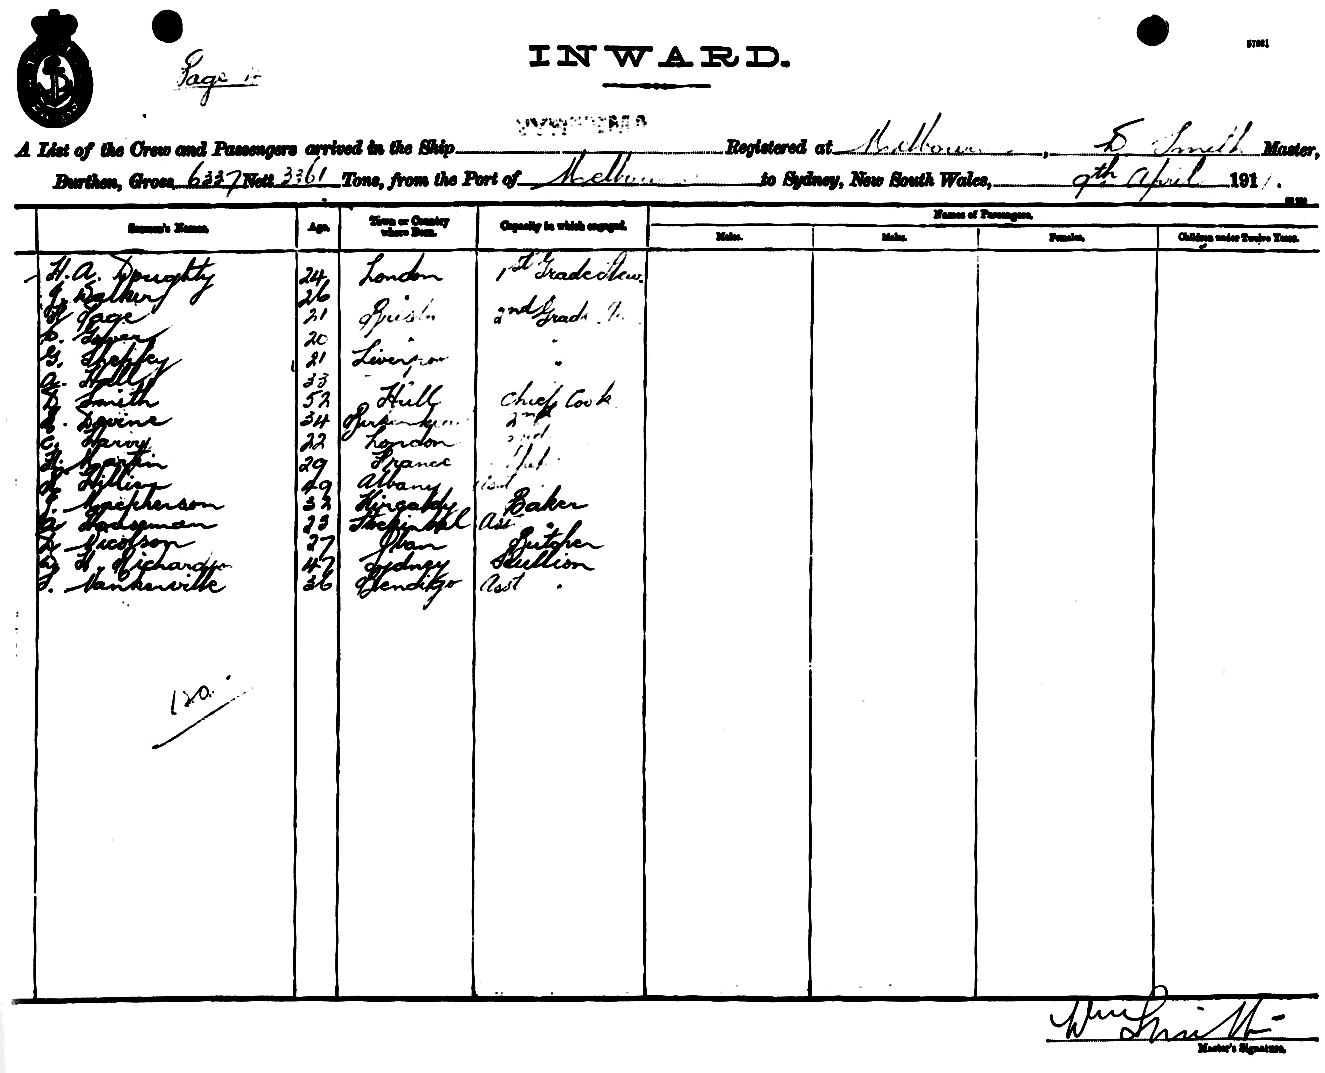 Page
INWARD.
A List of the Crew and Passengers arrived in the Ship Registered at Melbourne, D Smith Master,
Burthen, Gross 6337 Nett 3361 Tons, from the Port of Melbourne to Sydney, New South Wales, 9th April 191.
Names of Passengers.
Seamen's Names. Age. Town or Country where Born. Capacity in which engaged. Males. Males. Females. Children under Twelve Years.
H. A. Doughty 24 London 1st Grade Stew.
J. Walker 26 "
Page 21 2nd Grade
20 " "
G. Shepley 21 Liverpool "
A. Hall 33
D. Smith 52 Hull Chief Cook
Devine 34 2nd
C. Harvy 22 London
H. Martin 29 France
49 Albany Asst
J. Macpherson 32 Baker
A. Houseman 23 Asst "
D. Nicolson 27 Butcher
H. Richardson 47 Sydney Scullion
Nankerville 36 Bendigo Asst "
120.
Wm Smith
Master's Signature.